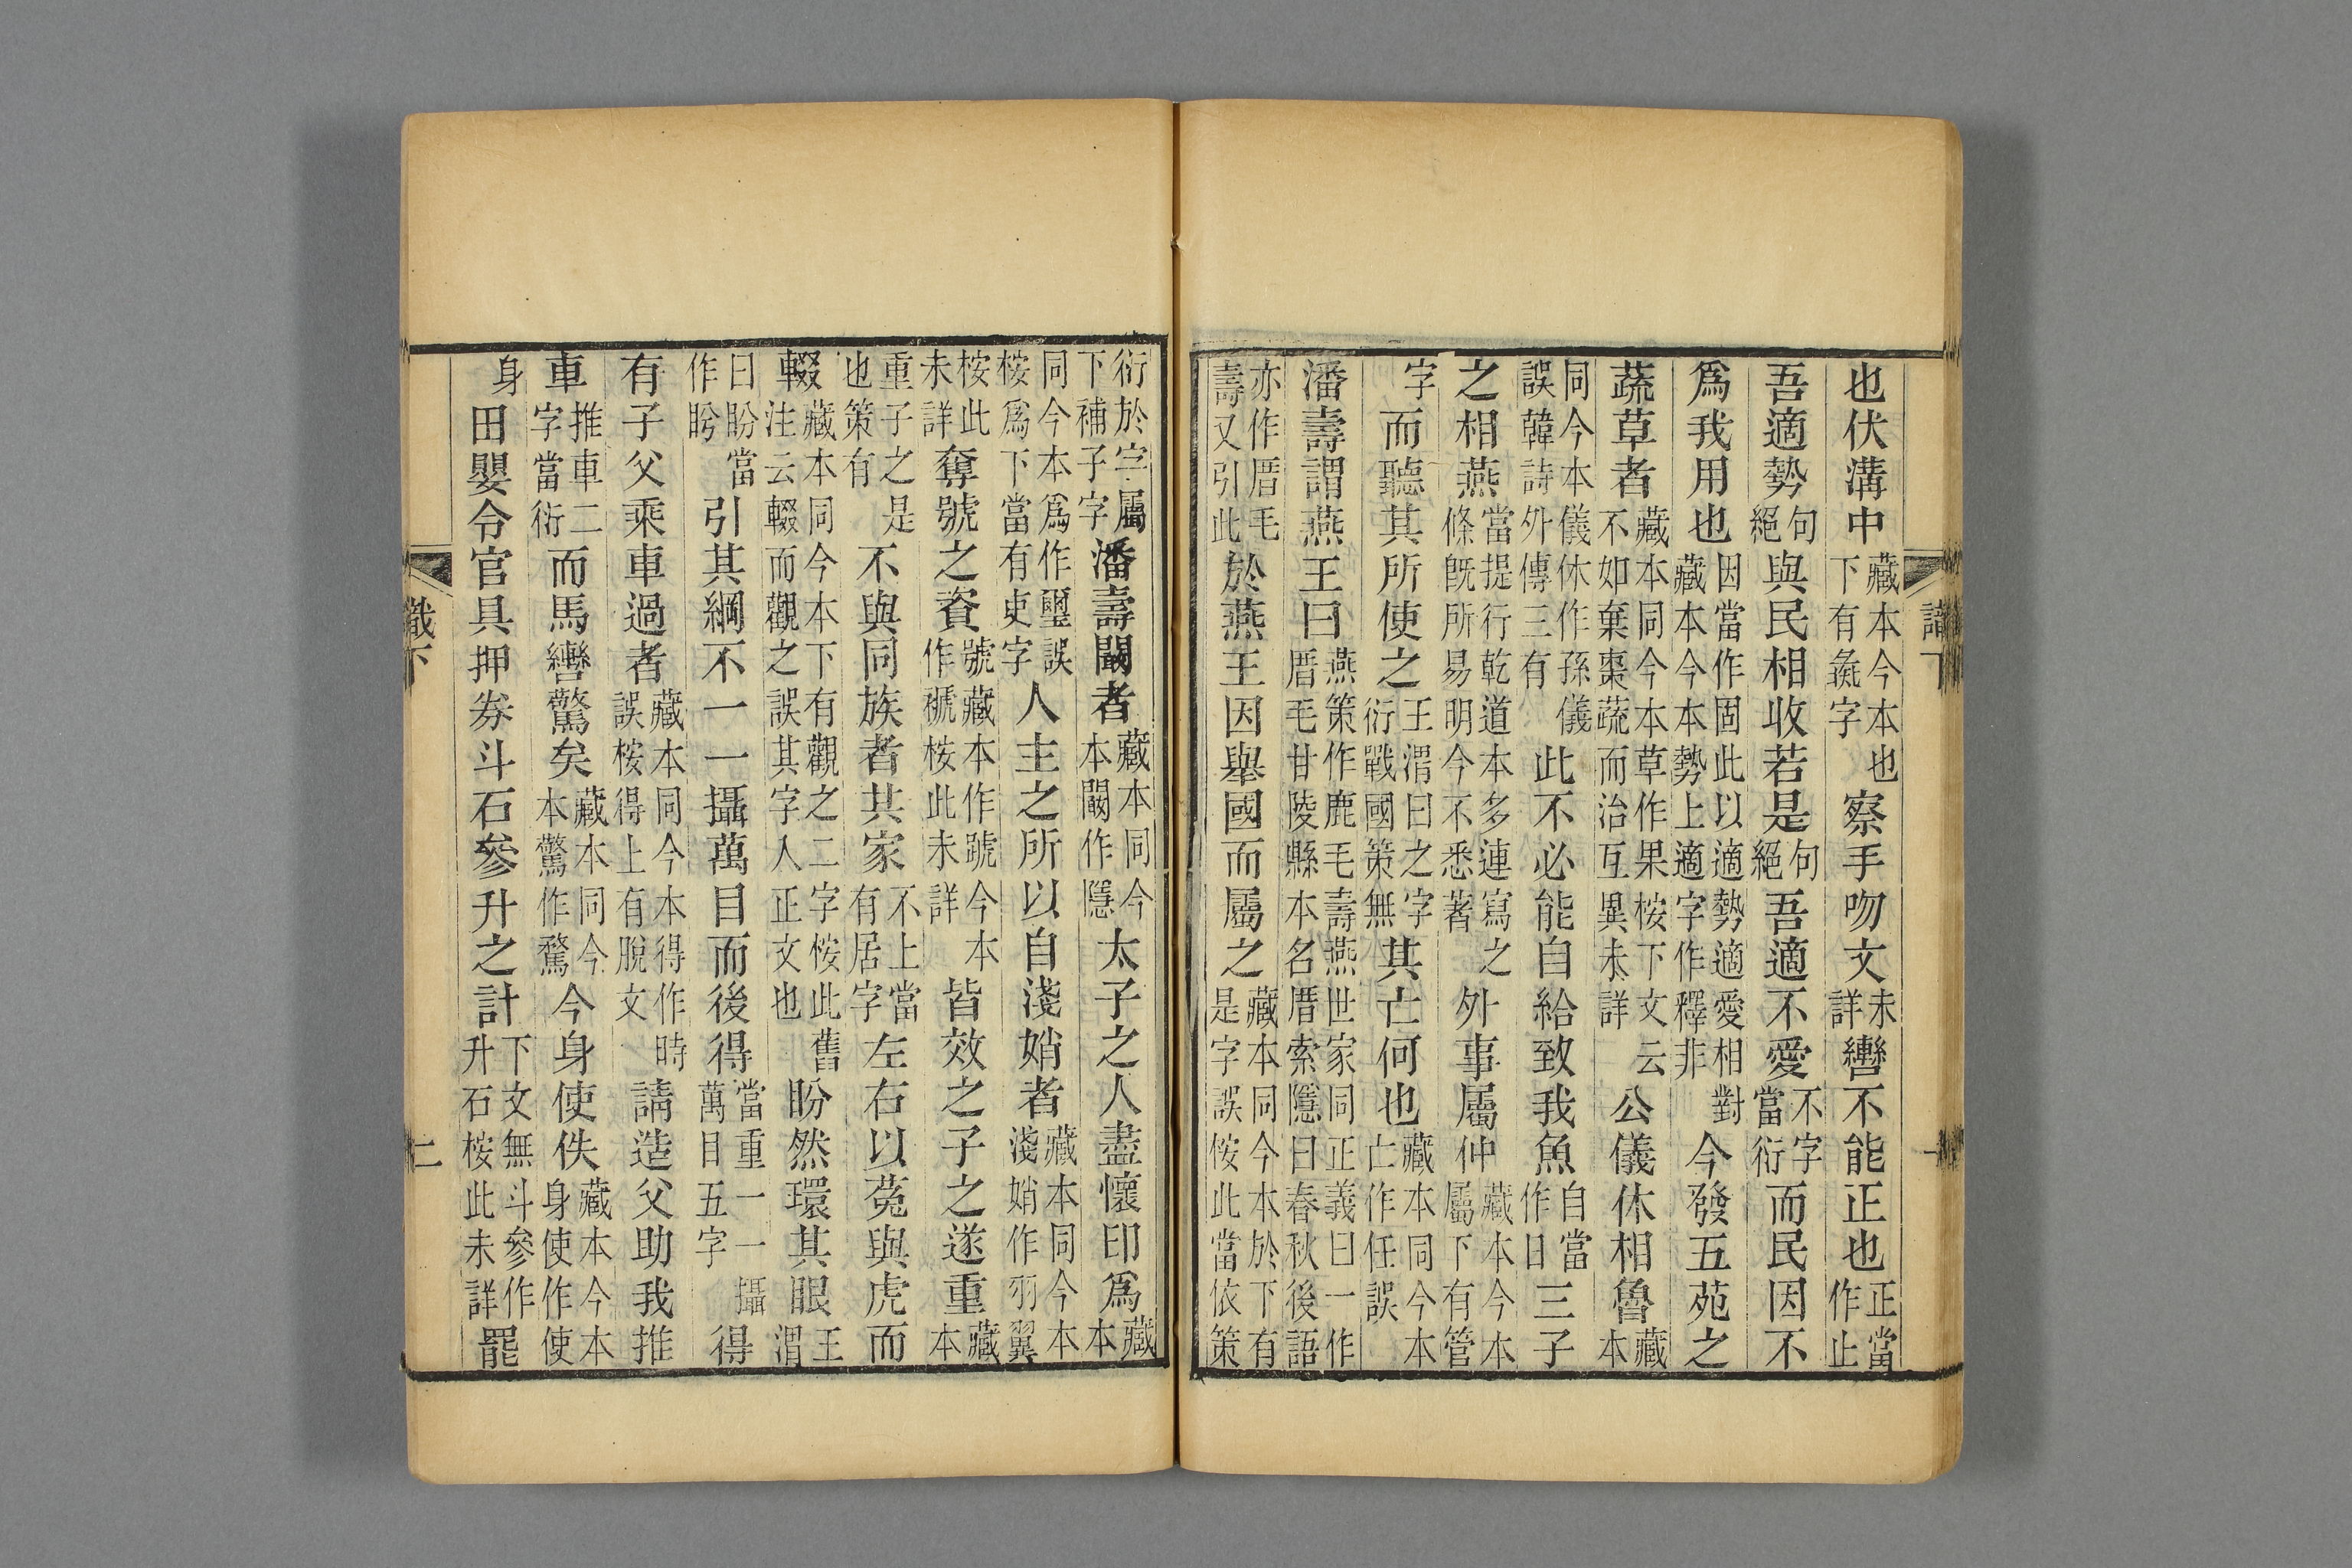 也伏溝中藏本今本也下有彘字察手吻文未詳轡不能正也正當作止
吾適勢句絕與民相收若是句絕吾適不愛不字當衍而民因不
爲我用也因當作固此以適勢適愛相對藏本今本勢上適字作釋非今發五苑之
蔬草者藏本同今本草作果桉下文云不如棄棗蔬而治互異未詳公儀休相魯藏本
同今本儀休作孫儀誤韓詩外傳三有此不必能自給致我魚自當作日三子
之相燕當提行乾道本多連寫之條旣所易明今不悉著外事屬仲藏本今本屬下有管
字而聽其所使之王渭曰之字衍戰國策無其亡何也藏本同今本亡作任誤
潘壽謂燕王曰燕策作鹿毛壽燕世家同正義曰一作厝毛甘陵縣本名厝索隱曰春秋後語
亦作厝毛壽又引此於燕王因舉國而屬之藏本同今本於下有是字誤桉此當依策
衍於字屬下補子字潘壽闞者藏本同今本闞作隱太子之人盡懷印爲藏本
同今本爲作璽誤桉爲下當有吏字人主之所以自淺娋者藏本同今本淺娋作羽翼
桉此未詳奪號之資號藏本作號今本作褫桉此未詳皆效之子之遂重藏本
重子之是也策有不與同族者共家不上當有居字左右以菟與虎而
輟藏本同今本下有觀之二字桉此舊注云輟而觀之誤其字人正文也盻然環其眼王渭
曰盼當作盻引其綱不一一攝萬目而後得當重一一攝萬目五字得
有子父乘車過者藏本同今本得作時誤桉得上有脫文請造父助我推
車推車二字當衍而馬轡驚矣藏本同今本驚作驁今身使佚藏本今本身使作使
身田嬰令官具押券斗石參升之計下文無斗參作升石桉此未詳罷
識下
二